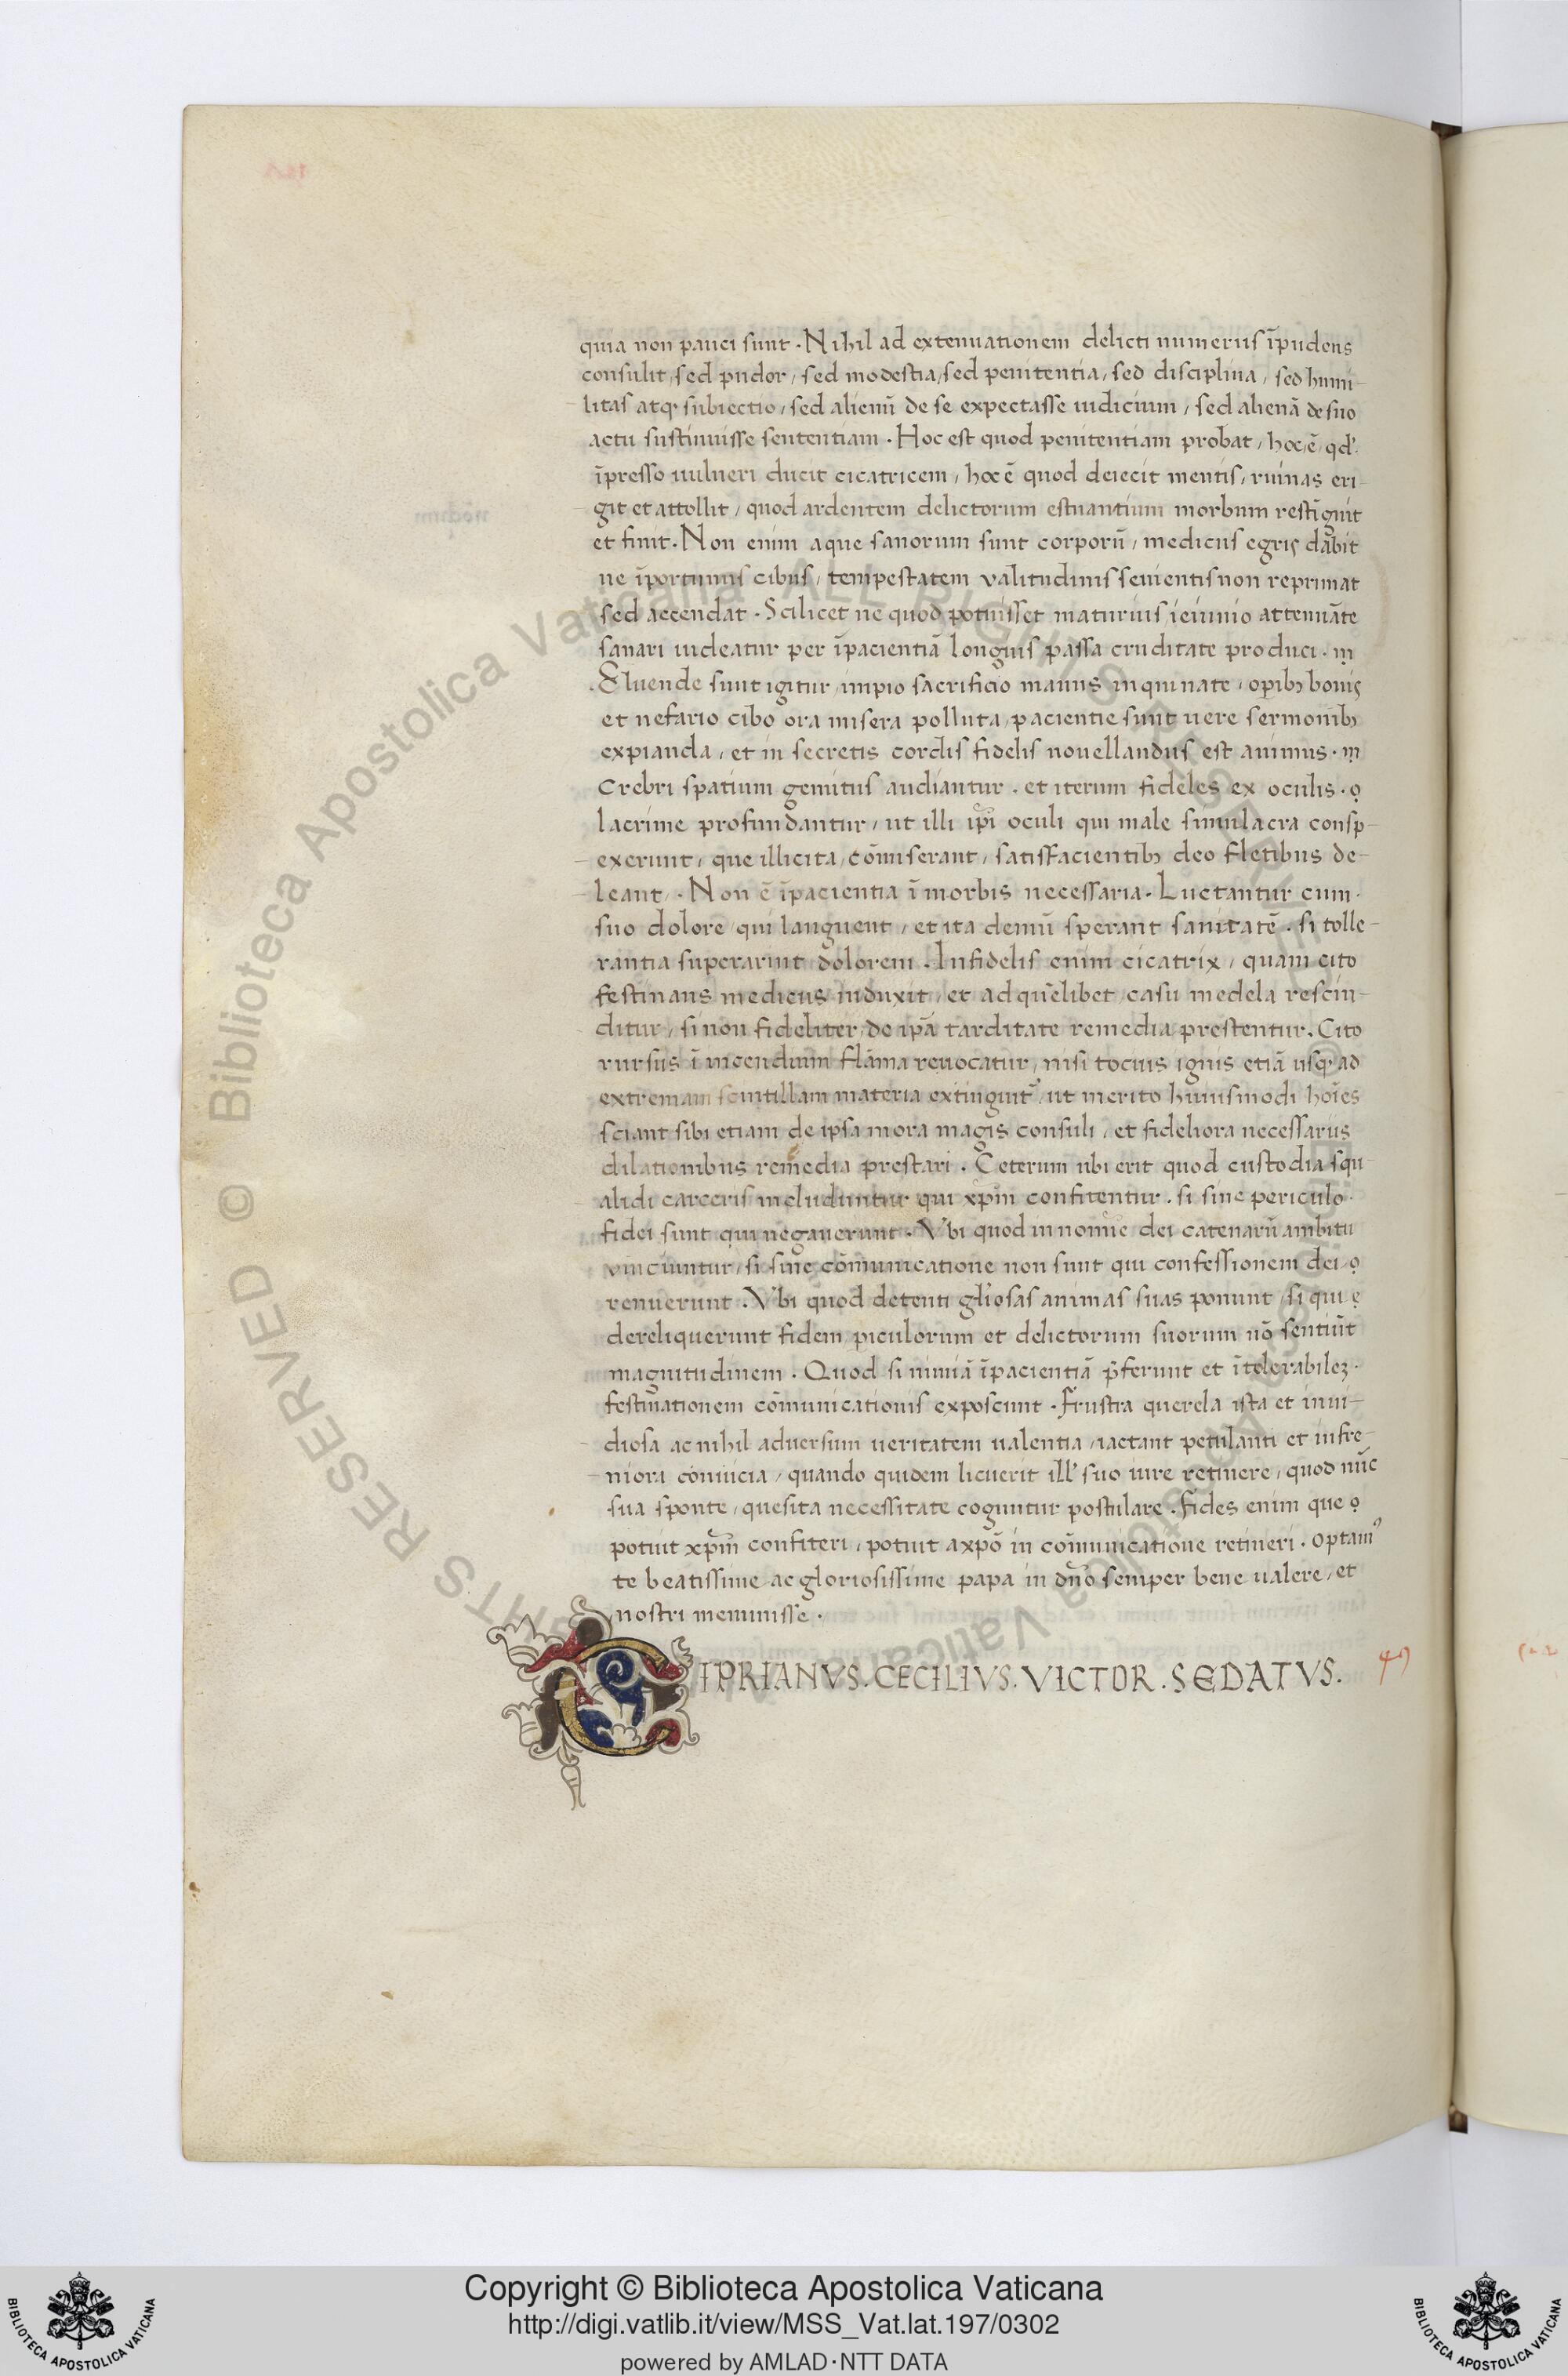 quia non pauci sunt . Nihil ad extenuationem delicti numerus īpudens
consulit, sed pudor, sed modestia, sed penitentia, sed disciplina, sed humi-
litas atq; subiectio, sed alienū de se expectasse iudicium, sed alienā de suo
actu sustinuisse sententiam . Hoc est quod penitentiam probat, hoc ē qd'
īpresso uulneri ducit cicatricem, hoc ē quod deiecit mentis, ruinas eri-
git et attollit, quod ardentem delictorum estuantium morbum restīguit
et finit . Non enim aque sanorum sunt corporū, medicus egris dabit
ne īportunus cibus, tempestatem valitudinis seuientis non reprimat
sed accendat . Scilicet ne quod potuisset maturius ieiunio attenuāte
sanari uideatur per īpacientiā longius passa cruditate produci . m
Eluende sunt igitur impio sacrificio manus inquinate, opib; bonis
et nefario cibo ora misera polluta, pacientie sunt uere sermonib;
expianda, et in secretis cordis fidelis nouellandus est animus . m
Crebri spatium gemitus audiantur . et iterum fideles ex oculis . o
lacrime profundantur, ut illi ipi oculi qui male simulacra consp-
exerunt, que illicita cōmiserant, satisfacientib; deo fletibus de-
leant . Non ē īpacientia ī morbis necessaria . Luctantur cum
suo dolore qui languent, et ita demū sperant sanitatē . si tolle-
rantia superarint dolorem . Infidelis enim cicatrix, quam cito
festinans medicus induxit, et ad quēlibet casu medela rescin-
ditur, si non fideliter de ipā tarditate remedia prestentur . Cito
rursus ī incendium flāma reuocatur, nisi tocius ignis etiā usq; ad
extremam scintillam materia extinguit, ut merito huiusmodi hoīes
sciant sibi etiam de ipsa mora magis consuli, et fideliora necessariis
dilationibus remedia prestari . Ceterum ubi erit quod custodia squ-
alidi carceris includuntur qui xpm confitentur . si sine periculo
fidei sunt qui negauerunt . Vbi quod in nomine dei catenarū ambitu
vinciuntur, si sine cōmunicatione non sunt qui confessionem dei o
renuerunt . Vbi quod detenti gl'iosas animas suas ponunt, si qui e
dereliquerunt fidem piculorum et delictorum suorum nō sentiūt
magnitudinem . Quod si nimiā īpacientiā p̄ferunt et ītolerabilez
festinationem cōmunicationis exposcunt . Frustra querela ista et inui-
diosa ac nihil aduersum ueritatem ualentia, iactant petulanti et infre-
niori conuicia, quando quidem licuerit ill' suo iure retinere, quod nūc
sua sponte, quesita necessitate coguntur postulare . fides enim que o
potuit xpm confiteri, potuit a xpō in cōmunicatione retineri . Optam'
te beatissime ac gloriosissime papa in dño semper bene ualere, et
nostri meminisse .
CIPRIANVS . CECILIVS . VICTOR . SEDATVS .
Copyright © Biblioteca Apostolica Vaticana
http://digi.vatlib.it/view/MSS_Vat.lat.197/0302
powered by AMLAD·NTT DATA
BIBLIOTECA APOSTOLICA VATICANA
BIBLIOTECA APOSTOLICA VATICANA
© Biblioteca Apostolica Vaticana ALL RIGHTS RESERVED